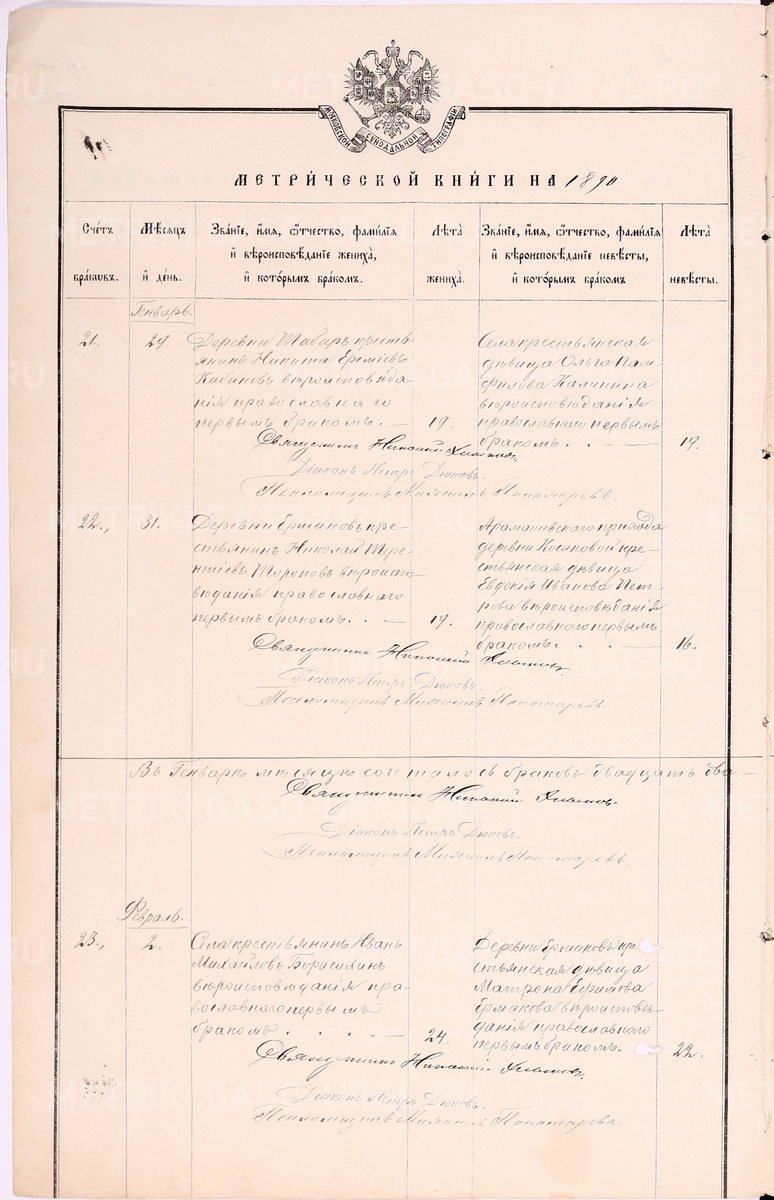 МОСКОВСКОЙ СѴНОДАЛЬНОЙ ТИПОГРАФІИ
МЕТРИ́ЧЕСКОЙ КНИ́ГИ НА 1890
Сче́тъ бра́ковъ.
Мѣ́сяцъ и де́нь.
Зва́ніе, и́мя, о́тчество, фами́лія и вѣроисповѣ́даніе жениха̀, и кото́рымъ бра́комъ.
Лѣ́та жениха̀.
Зва́ніе, и́мя, о́тчество, фами́лія и вѣроисповѣ́даніе невѣ́сты, и кото́рымъ бра́комъ
Лѣ́та невѣ́сты.
Генварь.
21.
29.
Деревни Шабаръ кресть-
янинъ Никита Ереміевъ
Кабаковъ вѣроисповѣда-
нія православнаго
первымъ бракомъ. —
19.
Села крестьянская
дѣвица Ольга Пам-
филова Калинина
вѣроисповѣданія
православнаго первымъ
бракомъ. . —
19.
Священникъ Николай
Діаконъ Петръ Дюковъ.
Псаломщикъ Михаилъ Пономаревъ.
22.,
31.
Деревни Ермаковъ кре-
стьянинъ Николай Тере-
нтіевъ Тороповъ вѣроиспо-
вѣданія православнаго
первымъ бракомъ. . —
19.
Арамашевскаго прихода
деревни Косиковой кре-
стьянская дѣвица
Евдокія Иванова Пет-
рова вѣроисповѣданія
православнаго первымъ
бракомъ. . —
16.
Священникъ Николай
Діаконъ Петръ Дюковъ.
Псаломщикъ Михаилъ Пономаревъ.
Въ Генварѣ мѣсяцѣ сочеталось браковъ двадцать два —
Священникъ Николай
Діаконъ Петръ Дюковъ.
Псаломщикъ Михаилъ Пономаревъ.
Февраль.
23.,
2.
Села крестьянинъ Иванъ
Михайловъ Борасихинъ
вѣроисповѣданія пра-
вославнаго первымъ
бракомъ . . . —
24.
Деревни Ермаковъ кре-
стьянская дѣвица
Матрона Ефимова
Ермакова вѣроисповѣ-
данія православнаго
первымъ бракомъ.
22.
Священникъ Николай
Діаконъ Петръ Дюковъ.
Псаломщикъ Михаилъ Пономаревъ.
METRIKI.GASO-URAL.RU